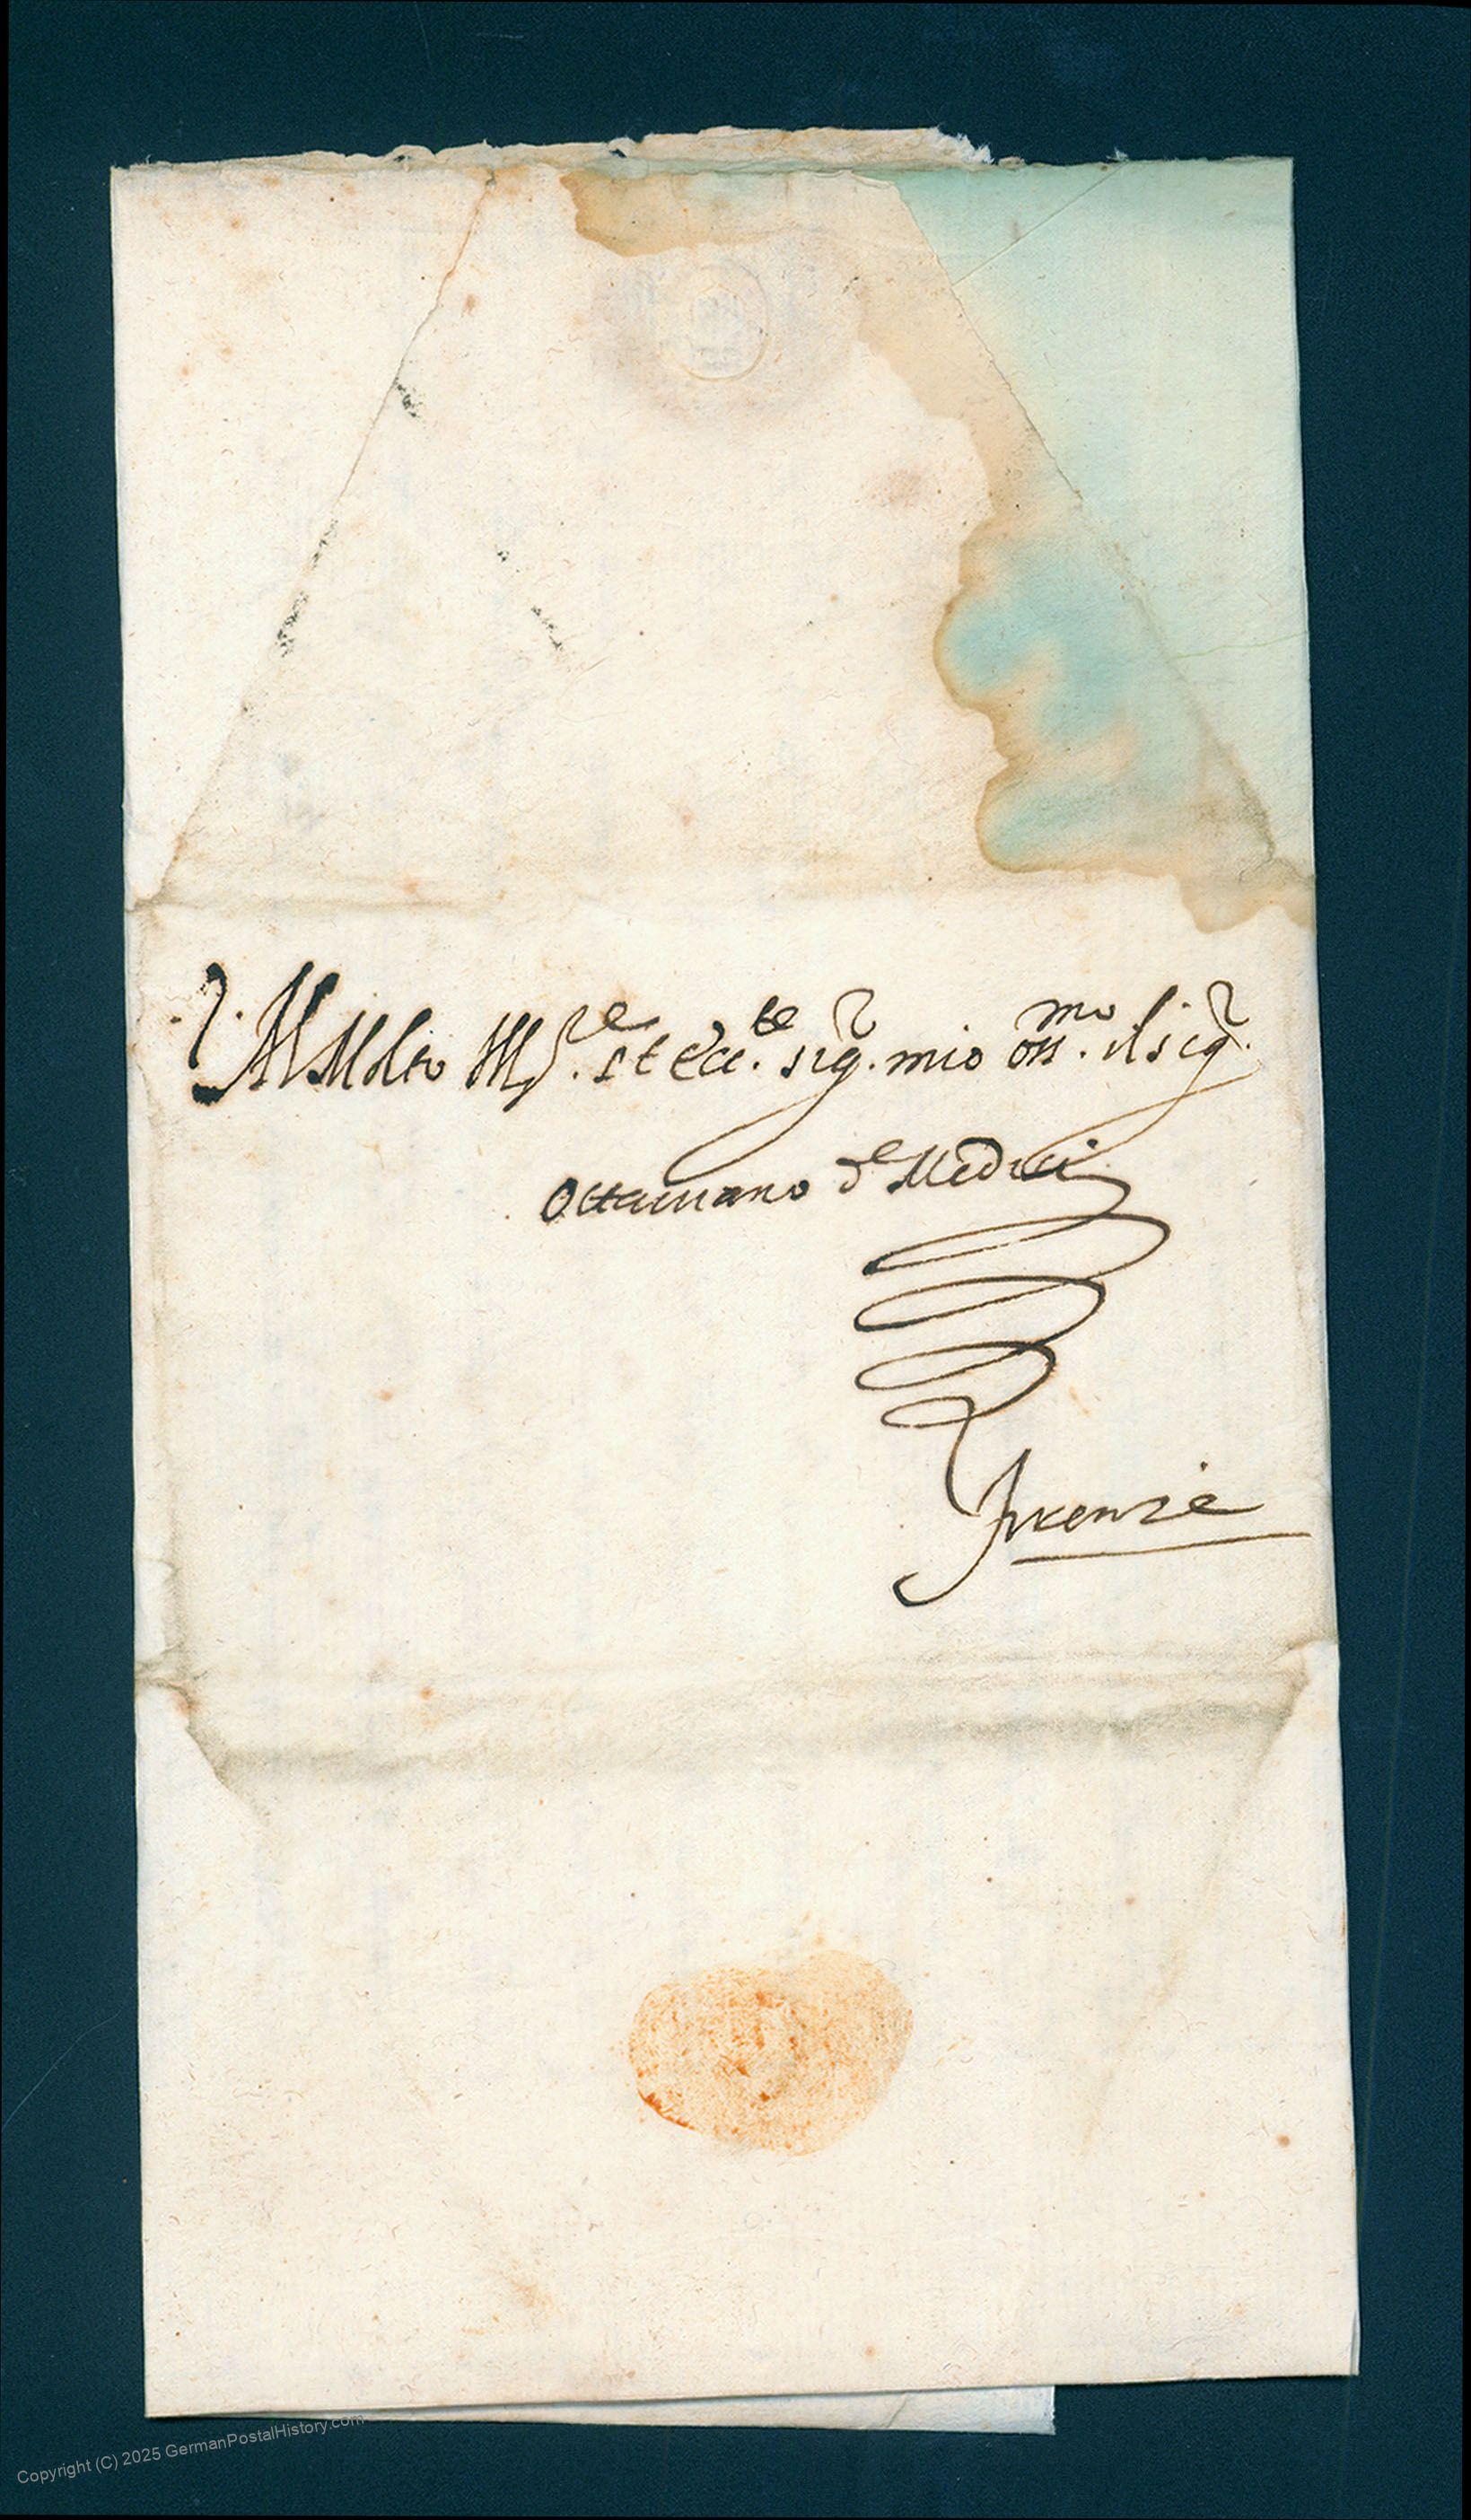 Al Molto Mg.re et Ecc.te sig.r mio oss.mo il sig.r
Ottaviano de Medici
Firenze
Copyright (C) 2025 GermanPostalHistory.com